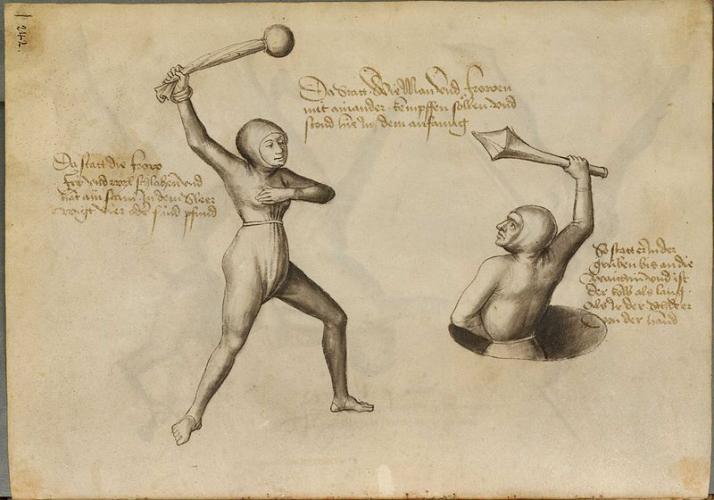 242.
Da statt wie Man und frowen
mit ainander kempffen söllen und
stand hie in dem anfang
Da statt die frow
fry und wyl schlahen und
hat ain stain in dem Sleer
wigt vier oder fünf pfund
So statt er in der
gruben bis an die
waichin und ist
der kolb als lang
als ir der Sleer
von der hand